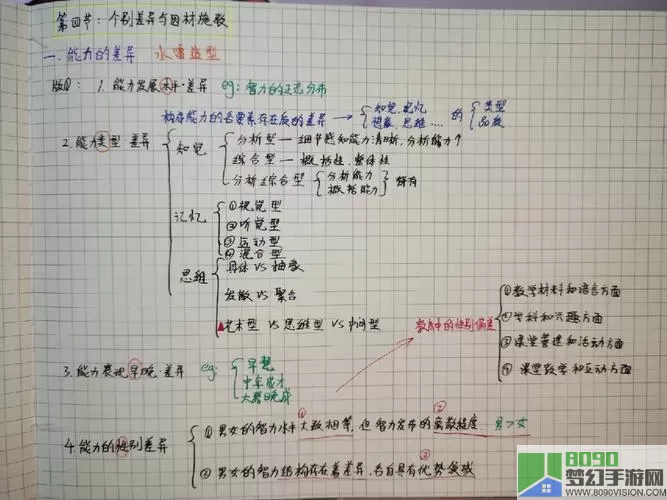 第四节：个别差异与因材施教
一、能力的差异 水雷造型
版①： 1. 能力发展水平差异 eg：智力的正态分布
构成能力的各要素存在质的差异 → 知觉、记忆 想象、思维…… 的 类型 品质
2. 能力类型差异
知觉
分析型 — 细节感知能力清晰，分析能力↑
综合型 — 概括性、整体性
分析综合型 分析能力 概括能力 兼有
记忆
①视觉型
②听觉型
③运动型
④混合型
思维
具体 VS 抽象
发散 VS 聚合
▲艺术型 VS 思维型 VS 中间型
教育中的性别偏差
①教学材料和语言方面
②学科和兴趣方面
③课堂管理和活动方面
④课堂教学和互动方面
3. 能力表现早晚差异 eg：
早慧
中年成才
大器晚成
4. 能力的性别差异
①男女的智力水平大致相等，但智力发布的离散程度 男>女
②男女的智力结构存在着差异，各自具有优势领域
8090
梦幻手游网
WWW.8090VISION.COM